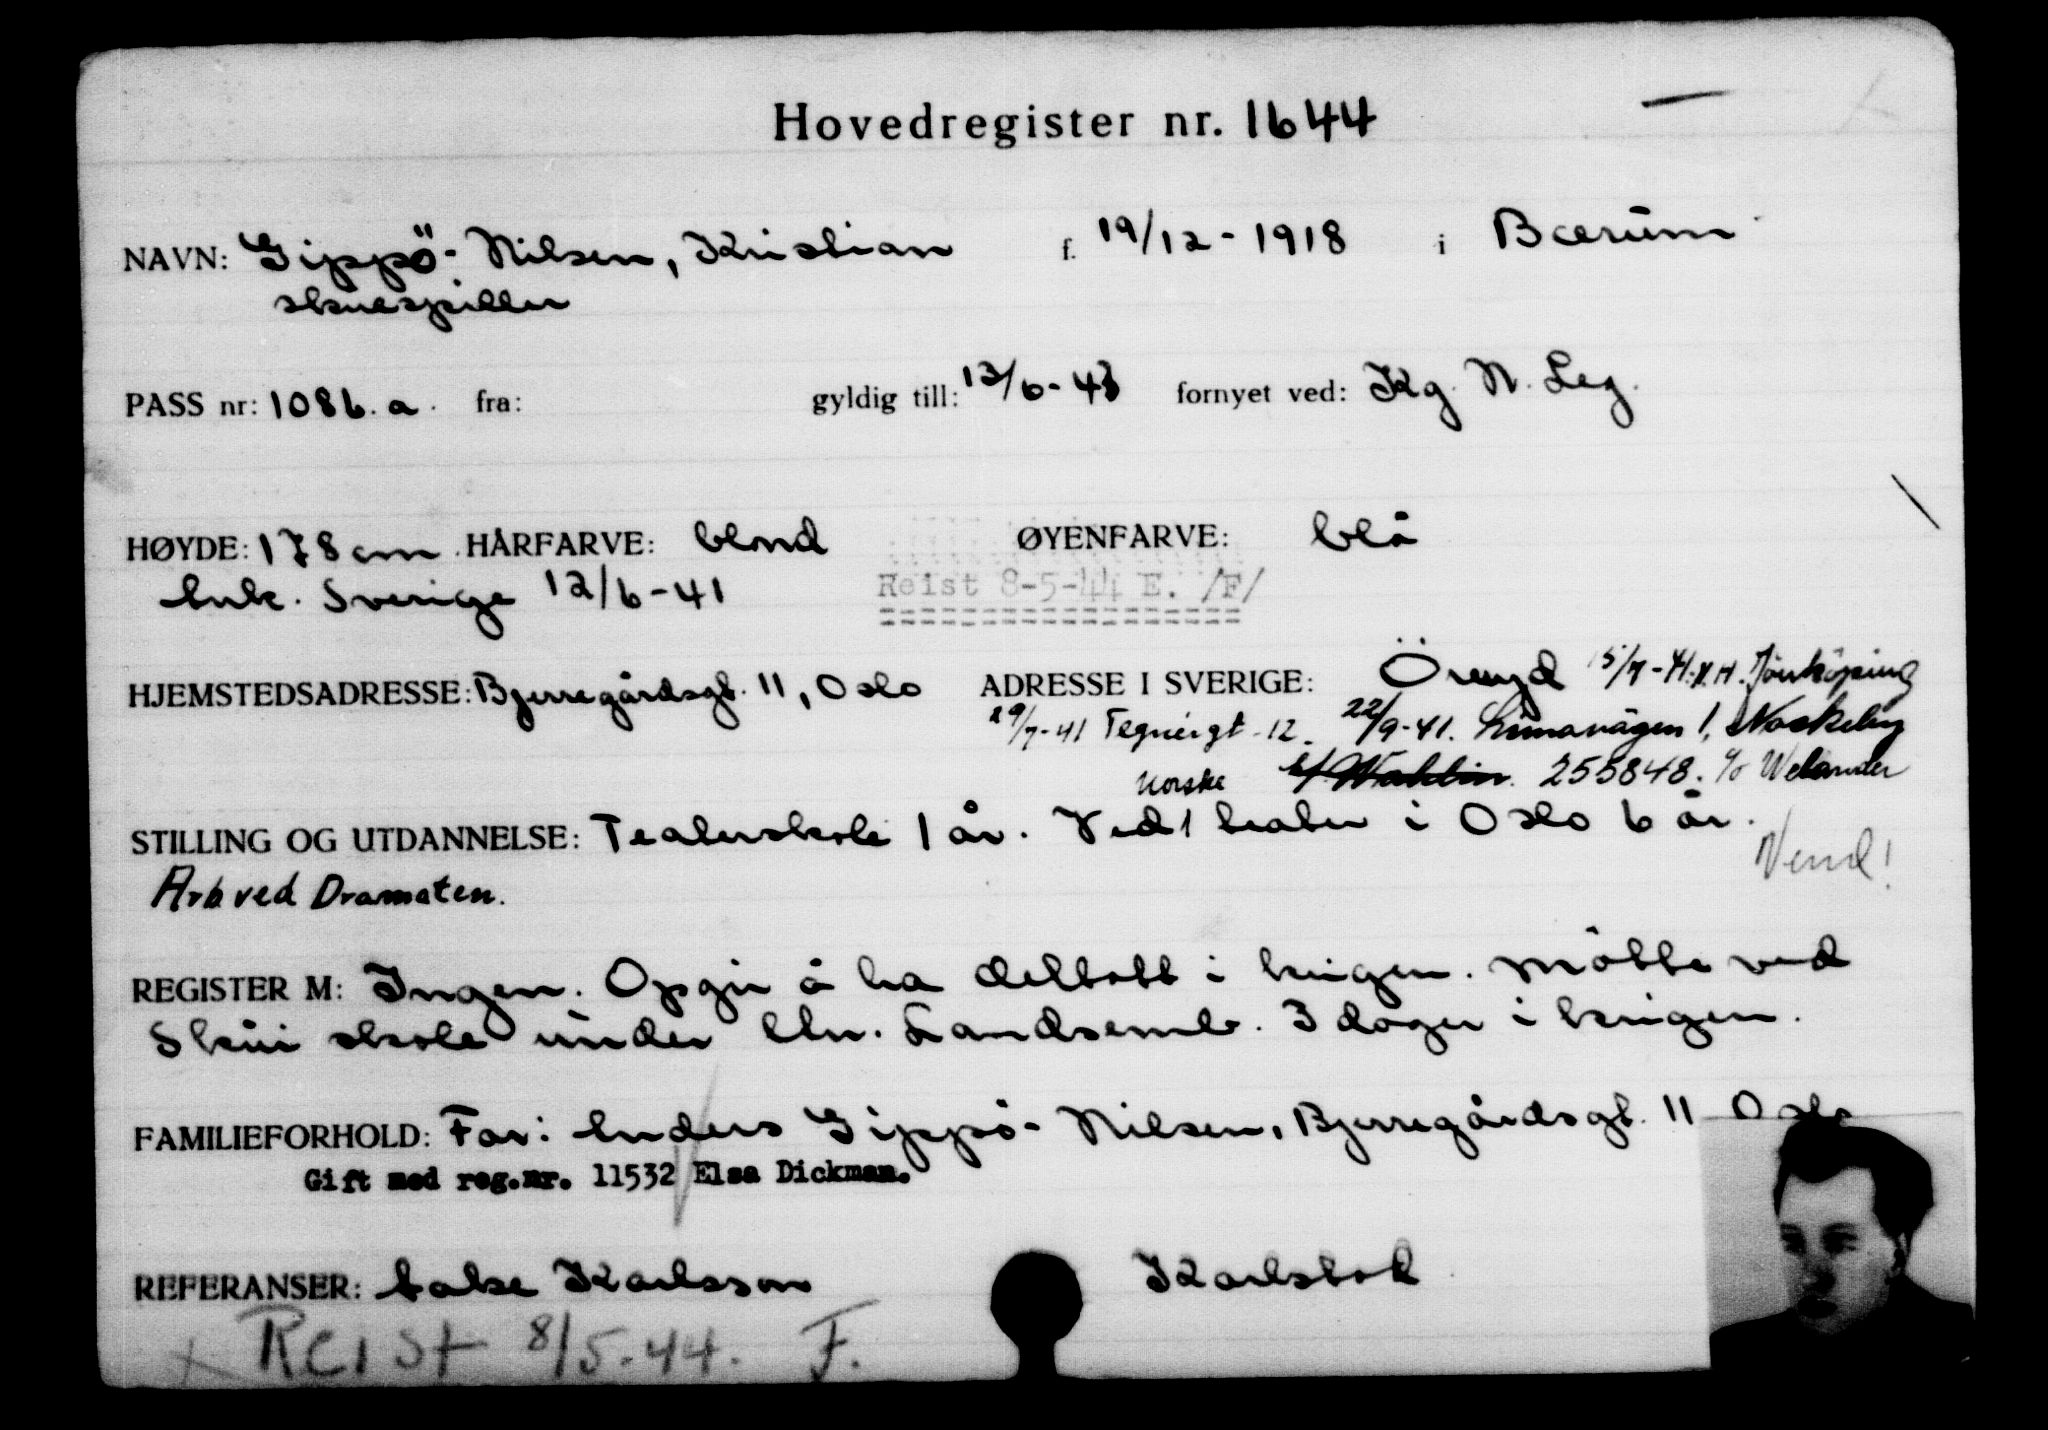 Hovedregister nr. 1644
NAVN: Gippö-Nilsen, Kristian f. 19/12-1918 i Bærum
skuespiller
PASS nr: 1086.a. fra: gyldig till: 13/6-43 fornyet ved: Kg. N. Leg.
HØYDE: 178 cm HÅRFARVE: blond ØYENFARVE: blå
Ank. Sverige 12/6-41 Reist 8-5-44 E. /F/
HJEMSTEDSADRESSE: Bjerregårdsgt. 11, Oslo ADRESSE I SVERIGE: Öreryd 15/7-41 Jönköping
29/7-41 Tegnérgt-12. 22/9-41. Limavägen 1, Nockeby
c/o Wahlin. 255848. c/o Welander
STILLING OG UTDANNELSE: Teaterskole 1 år. Ved Norske teater i Oslo 6 år.
Vend!
Arb ved Dramaten.
REGISTER M: Ingen. Opgir å ha deltatt i krigen. Møtte ved
Skui skole under Ltn. Landsemb. 3 dager i krigen.
FAMILIEFORHOLD: Far: Anders Gippö-Nilsen, Bjerregårdsgt. 11 Oslo
Gift med reg.nr. 11532 Elsa Dickman.
REFERANSER: Aake Karlsson Karlstad
Reist 8/5.44. F.